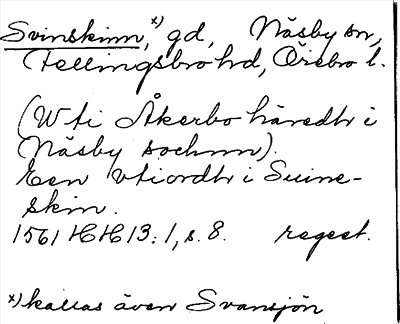 Svinskinn,x) gd, Näsby sn,
Fellingsbro hd, Örebro l.
(W ti Åkerbo häredh i
Näsby sochnn).
Een vtiordh i Suine-
skin.
1561 HH 13:1, s. 8. regest.
x) kallas även Svansjön